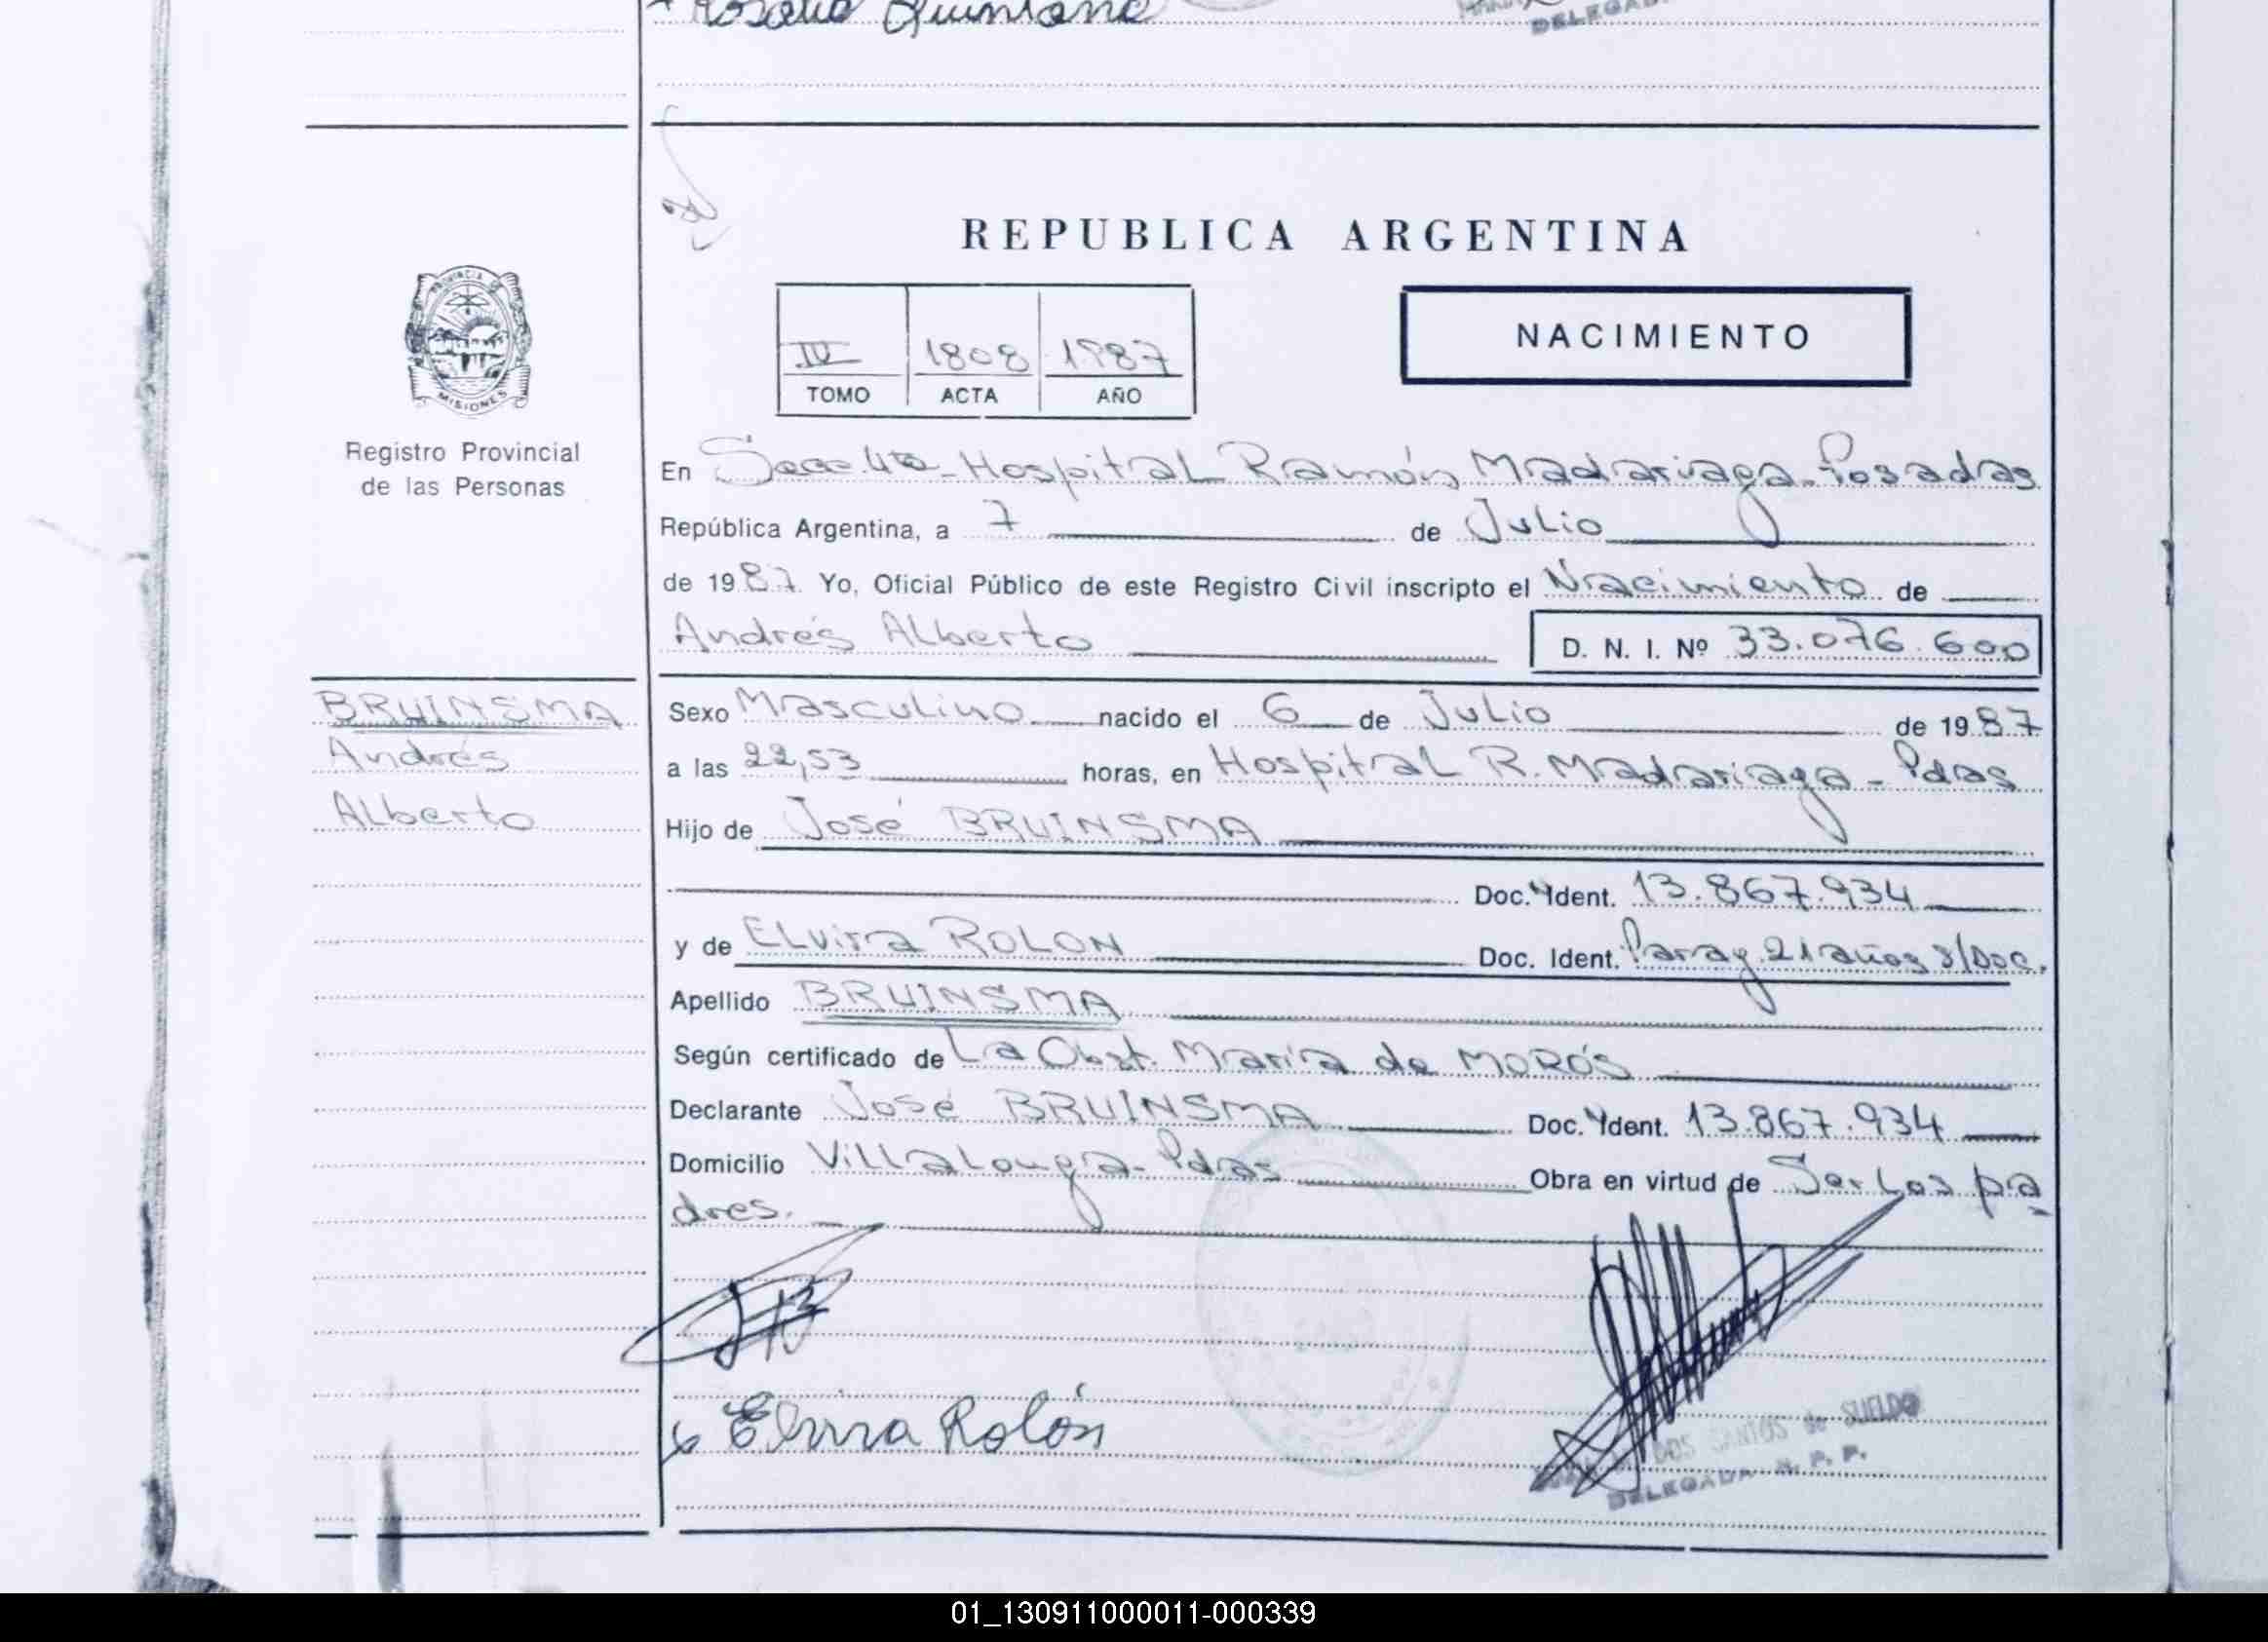 Rosalia Quintana
DELEGADA
REPUBLICA ARGENTINA
PROVINCIA DE
MISIONES
Registro Provincial
de las Personas
IV 1808 1987
TOMO ACTA AÑO
NACIMIENTO
En Secc. 4ta - Hospital Ramón Madariaga - Posadas
República Argentina, a 7 de Julio
de 1987. Yo, Oficial Público de este Registro Civil inscripto el Nacimiento de
Andrés Alberto D. N. I. Nº 33.076.600
BRUINSMA
Andrés
Alberto
Sexo Masculino nacido el 6 de Julio de 1987
a las 22,53 horas, en Hospital R. Madariaga - Pdas
Hijo de José BRUINSMA
Doc. Ydent. 13.867.934
y de Elvira ROLON Doc. Ident. Paray. 21 años s/Doc.
Apellido BRUINSMA
Según certificado de La Obst. María de MORÓS
Declarante José BRUINSMA Doc. Ydent. 13.867.934
Domicilio Villalonga - Pdas Obra en virtud de Ser los pa
dres.
Elvira Rolón
DOS SANTOS de SUELDO
DELEGADA R. P. P.
01_130911000011-000339